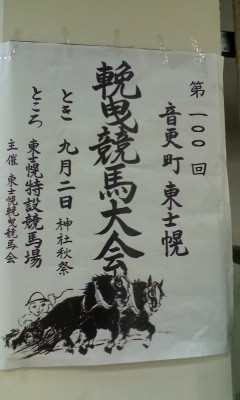 第一〇〇回
音更町東士幌
輓曳競馬大会
とき 九月二日 神社秋祭
ところ 東士幌特設競馬場
主催 東士幌輓曳競馬会